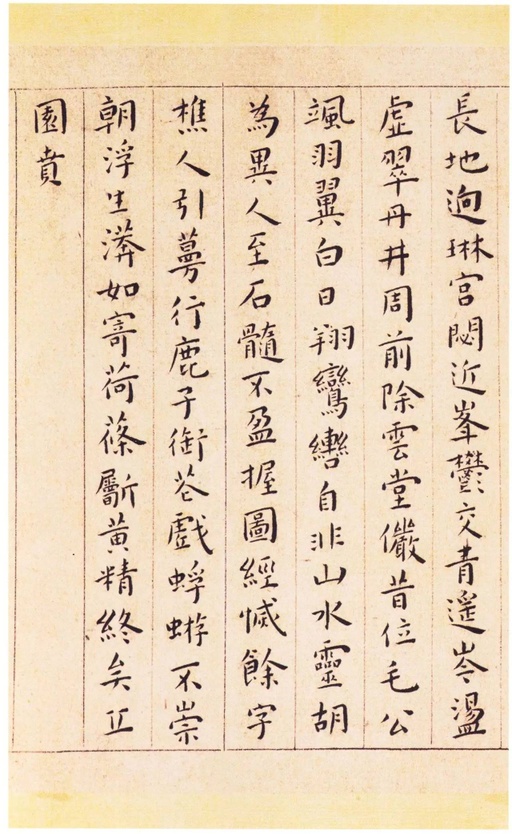 長地迥琳宮閟近峯鬱交青遥岑盪
虛翠丹井周前除雲堂儼昔位毛公
颯羽翼白日翔鸞轡自非山水靈胡
為異人至石髓不盈握圖經餘字
樵人引蔓行鹿子銜花戲蜉蝣不崇
朝浮生漭如寄荷蓧斸黃精終矣丘
園賁